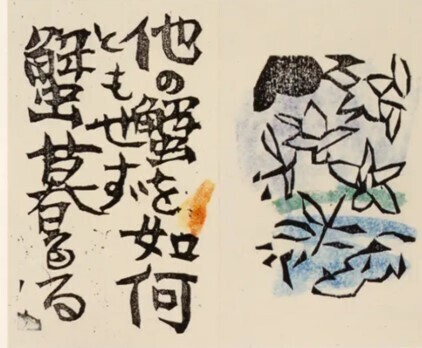 他の蟹を如何
ともせず
蟹暮るる